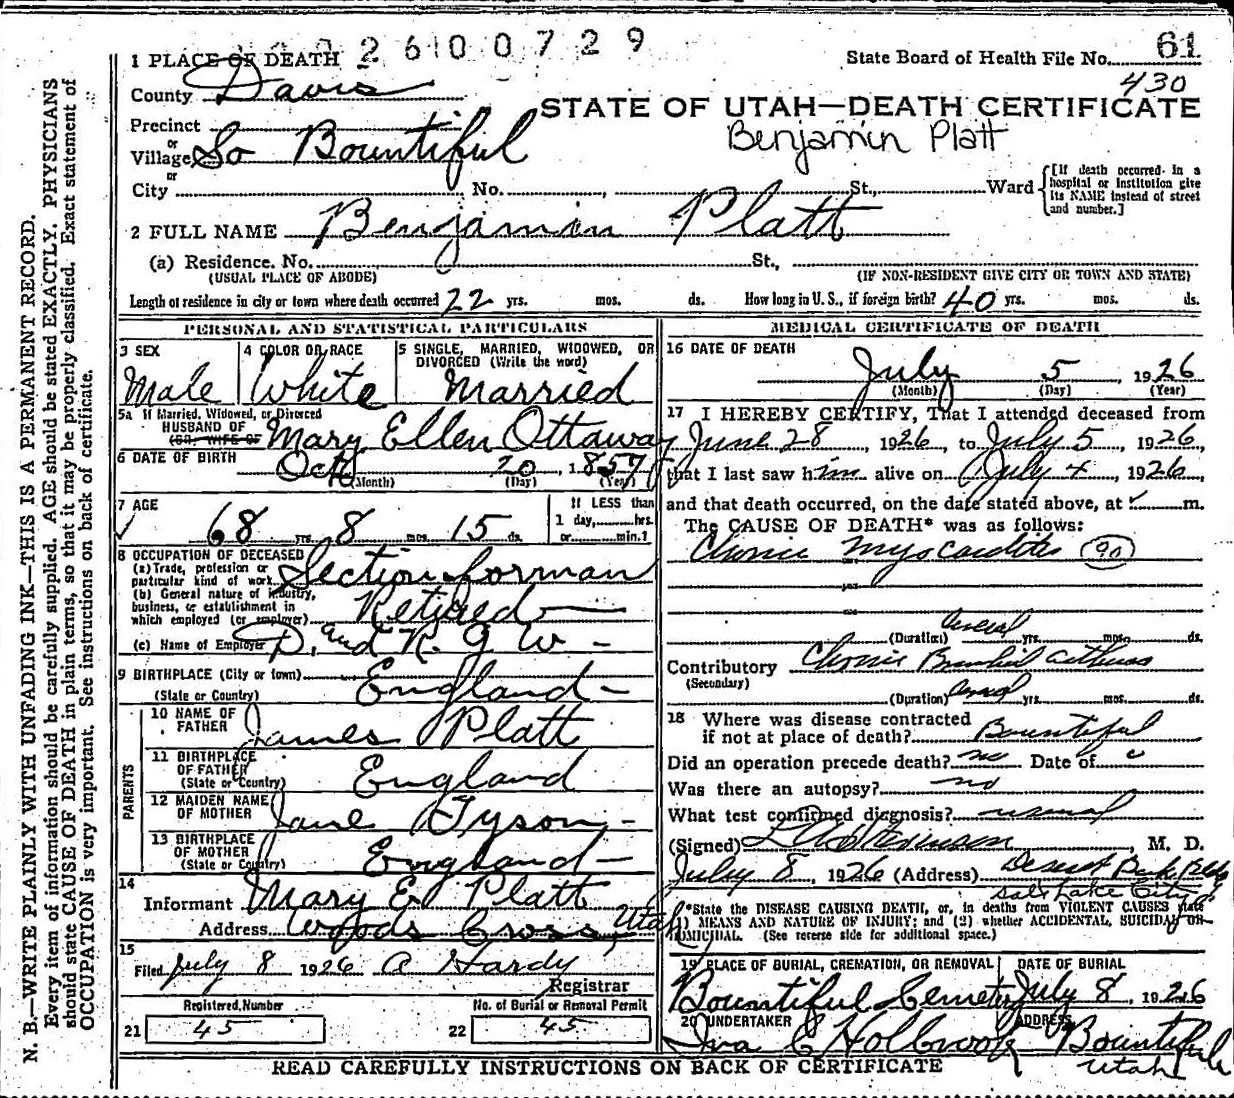 2600729
1 PLACE OF DEATH
State Board of Health File No. 61
430
County Davis
STATE OF UTAH—DEATH CERTIFICATE
Precinct
or
Village So Bountiful
Benjamin Platt
or
City No. , St., Ward
[If death occurred in a
hospital or institution give
its NAME instead of street
and number.]
2 FULL NAME Benjamin Platt
(a) Residence. No. St.,
(USUAL PLACE OF ABODE) (IF NON-RESIDENT GIVE CITY OR TOWN AND STATE)
Length of residence in city or town where death occurred 22 yrs. mos. ds. How long in U. S., if foreign birth? 40 yrs. mos. ds.
PERSONAL AND STATISTICAL PARTICULARS
3 SEX
Male
4 COLOR OR RACE
White
5 SINGLE, MARRIED, WIDOWED, OR
DIVORCED (Write the word)
Married
5a If Married, Widowed, or Divorced
HUSBAND OF
(OR) WIFE OF Mary Ellen Ottaway
6 DATE OF BIRTH Oct 20, 1857
(Month) (Day) (Year)
7 AGE
68 yrs. 8 mos. 15 ds.
If LESS than
1 day, hrs.
or min.?
8 OCCUPATION OF DECEASED
(a) Trade, profession or
particular kind of work Section forman
(b) General nature of industry,
business, or establishment in
which employed (or employer) Retired
(c) Name of Employer D. and R. G W -
9 BIRTHPLACE (City or town)
(State or Country) England -
PARENTS
10 NAME OF
FATHER James Platt
11 BIRTHPLACE
OF FATHER
(State or Country) England
12 MAIDEN NAME
OF MOTHER Jane Tyson -
13 BIRTHPLACE
OF MOTHER
(State or Country) England -
14
Informant Mary E Platt
Address Woods Cross, Utah
15
Filed July 8 1926 A Hardy
Registrar
Registered Number
21 45
No. of Burial or Removal Permit
22 45
MEDICAL CERTIFICATE OF DEATH
16 DATE OF DEATH
July 5, 1926
(Month) (Day) (Year)
17 I HEREBY CERTIFY, That I attended deceased from
June 28, 1926, to July 5, 1926,
that I last saw him alive on July 4, 1926
and that death occurred, on the date stated above, at m.
The CAUSE OF DEATH* was as follows:
Chronic Myocarditis 90
(Duration) Several yrs. mos. ds.
Contributory Chronic Bronchial asthma
(Secondary)
(Duration) Several yrs. mos. ds.
18 Where was disease contracted
if not at place of death? Bountiful
Did an operation precede death? no Date of
Was there an autopsy? no
What test confirmed diagnosis? usual
(Signed) , M. D.
July 8, 1926 (Address) Deseret Bank Bldg
Salt Lake City
*State the DISEASE CAUSING DEATH, or, in deaths from VIOLENT CAUSES state
(1) MEANS AND NATURE OF INJURY; and (2) whether ACCIDENTAL, SUICIDAL OR
HOMICIDAL. (See reverse side for additional space.)
19 PLACE OF BURIAL, CREMATION, OR REMOVAL
Bountiful Cemetery
DATE OF BURIAL
July 8, 1926
20 UNDERTAKER
Iva C Holbrook
ADDRESS
Bountiful
Utah
READ CAREFULLY INSTRUCTIONS ON BACK OF CERTIFICATE
N. B.—WRITE PLAINLY WITH UNFADING INK—THIS IS A PERMANENT RECORD.
Every item of information should be carefully supplied. AGE should be stated EXACTLY. PHYSICIANS
should state CAUSE OF DEATH in plain terms, so that it may be properly classified. Exact statement of
OCCUPATION is very important. See instructions on back of certificate.